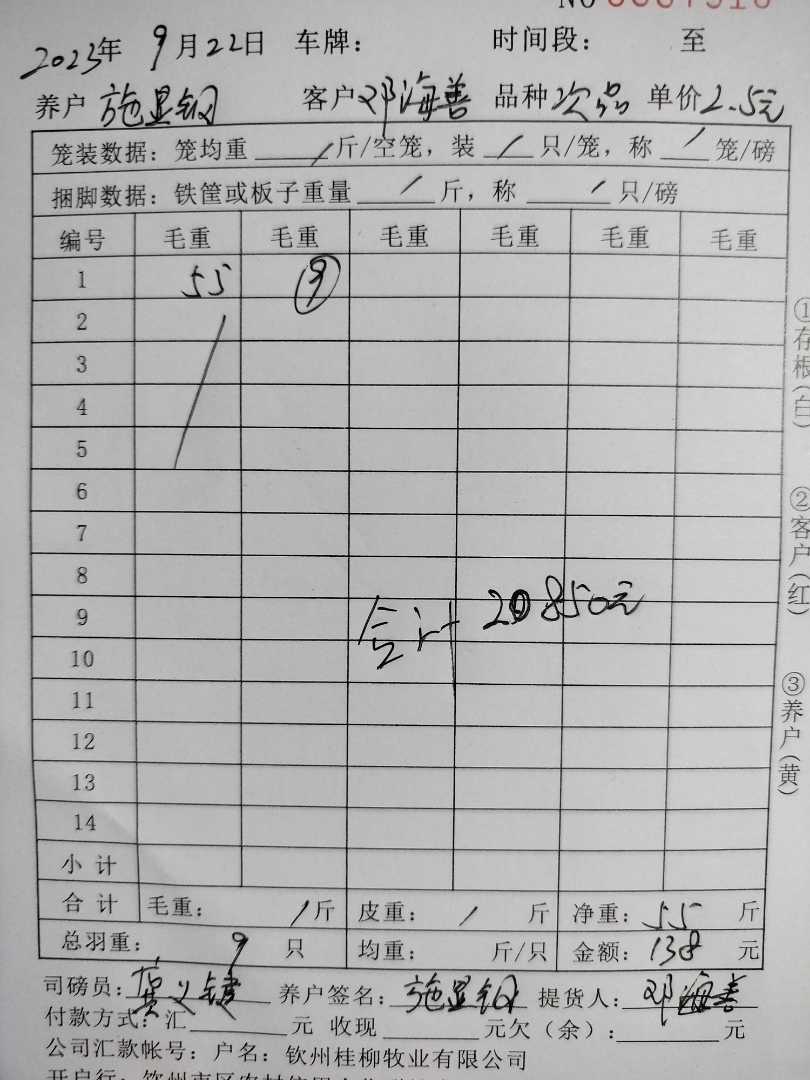 NO 0007518
2023年 9月22日 车牌: 时间段: 至
养户 施显钢 客户 邓海善 品种 次品 单价 2.5元
笼装数据: 笼均重 / 斤/空笼, 装 / 只/笼, 称 / 笼/磅
捆脚数据: 铁筐或板子重量 / 斤, 称 / 只/磅
编号 毛重 毛重 毛重 毛重 毛重 毛重
1 55 9
2
3
4
5
6
7
8
9
合计 20850元
10
11
12
13
14
小计
合计 毛重: / 斤 皮重: / 斤 净重: 55 斤
总羽重: 9 只 均重: 斤/只 金额: 138 元
司磅员: 黄义键 养户签名: 施显钢 提货人: 邓海善
付款方式: 汇 元 收现 元欠(余): 元
公司汇款帐号: 户名: 钦州桂柳牧业有限公司
①存根(白) ②客户(红) ③养户(黄)